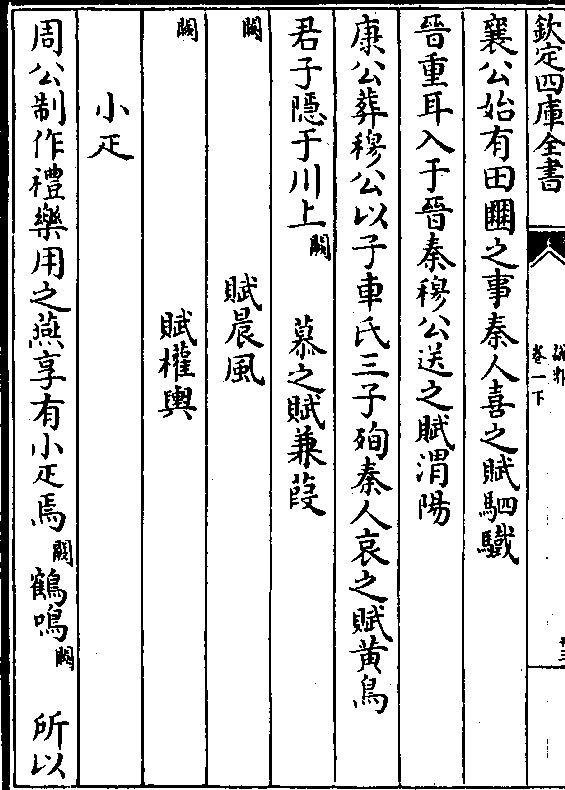 欽定四庫全書
卷一下
襄公始有田之事秦人喜之賦駟驖
晉重耳入于晉秦穆公送之賦渭陽
康公葬穆公以子車氏三子殉秦人哀之賦黄鳥
君子隱于川上闕 慕之賦蒹葭
闕 賦晨風
闕 賦權輿
小疋
周公制作禮樂用之燕享有小疋焉闕鶴鳴闕 所以